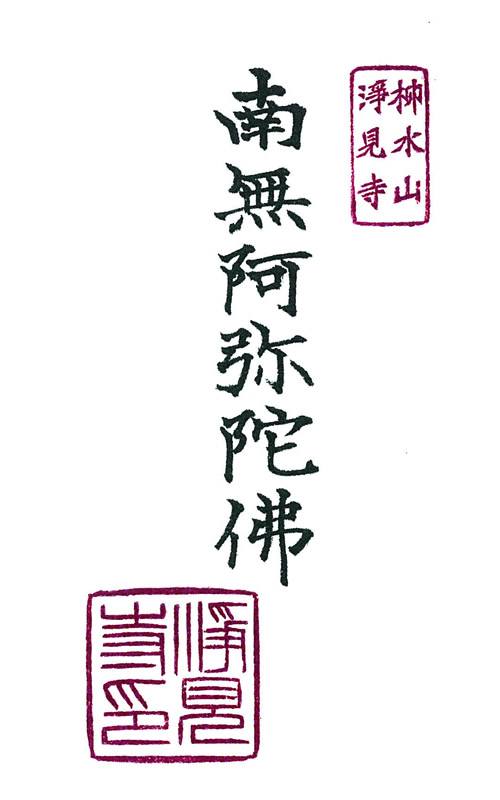 柳水山
淨見寺
南無阿弥陀佛
淨見
寺印